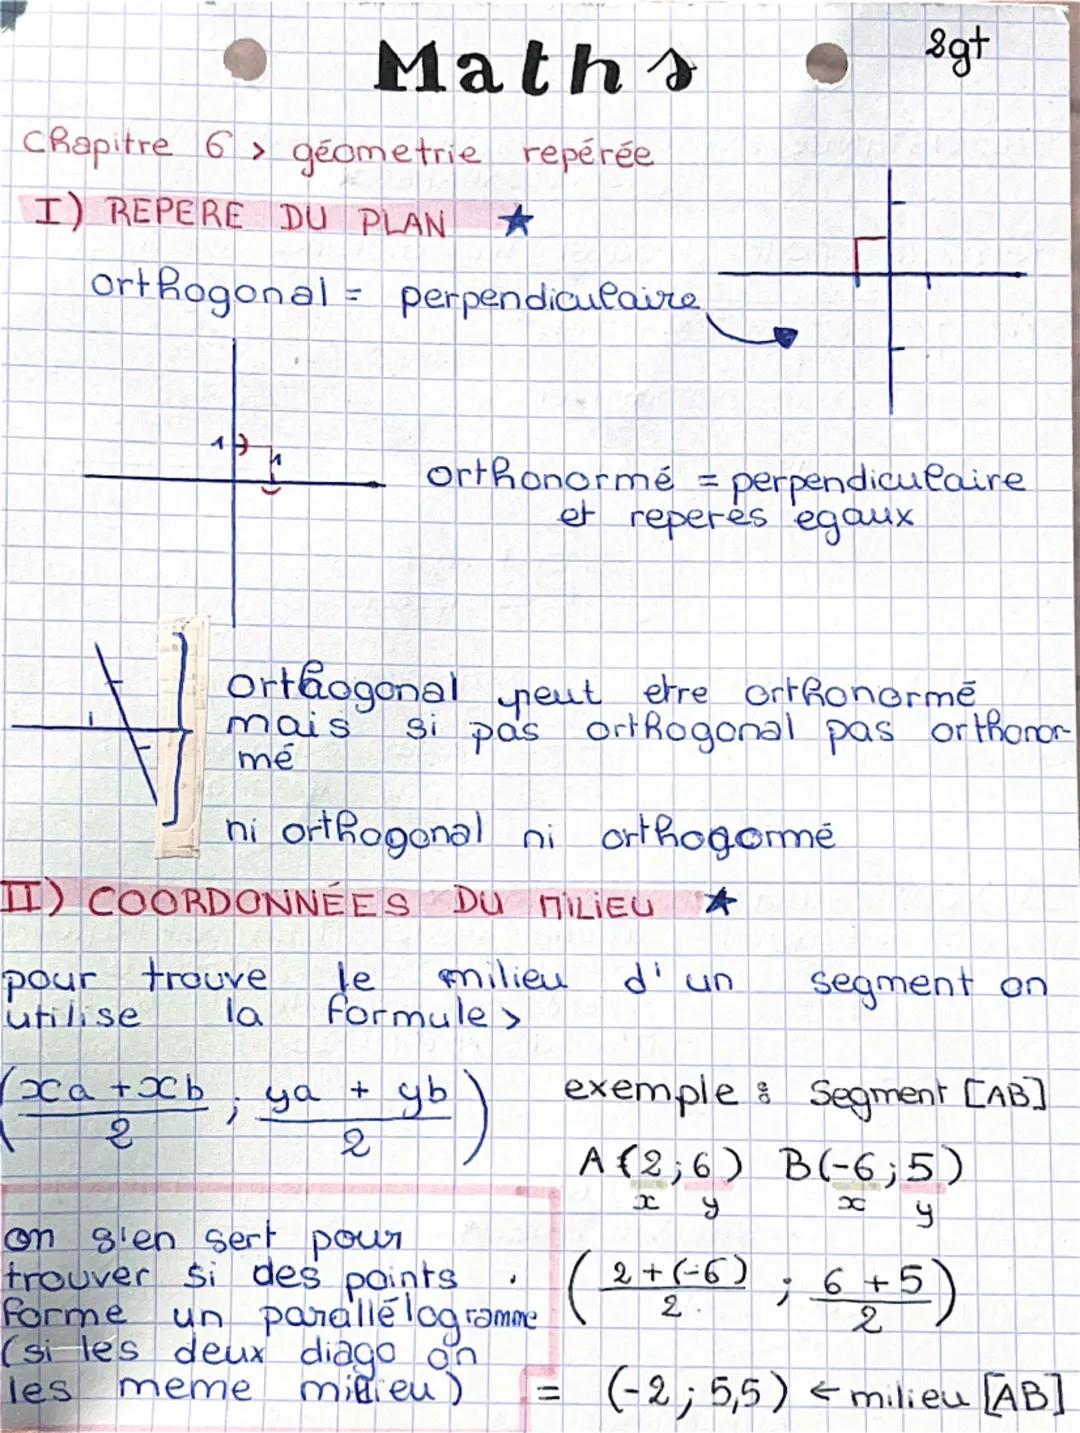 Maths
2gt
Chapitre 6 > géometrie repérée
I) REPERE DU PLAN ★
orthogonal = perpendiculaire
1
1
orthonormé = perpendiculaire
et reperes egaux
orthogonal peut etre orthonormé
mais si pas orthogonal pas orthonor-
mé
ni orthogonal ni orthogormé
II) COORDONNÉES DU MILIEU ★
pour trouve le milieu d'un segment on
utilise la formule >
(xa + xb / 2 ; ya + yb / 2)
exemple : Segment [AB]
A(2;6) B(-6;5)
x y x y
(2+(-6) / 2 ; 6+5 / 2)
= (-2 ; 5,5) ← milieu [AB]
on s'en sert pour
trouver si des points
forme un parallélogramme
(si les deux diago on
les meme milieu)